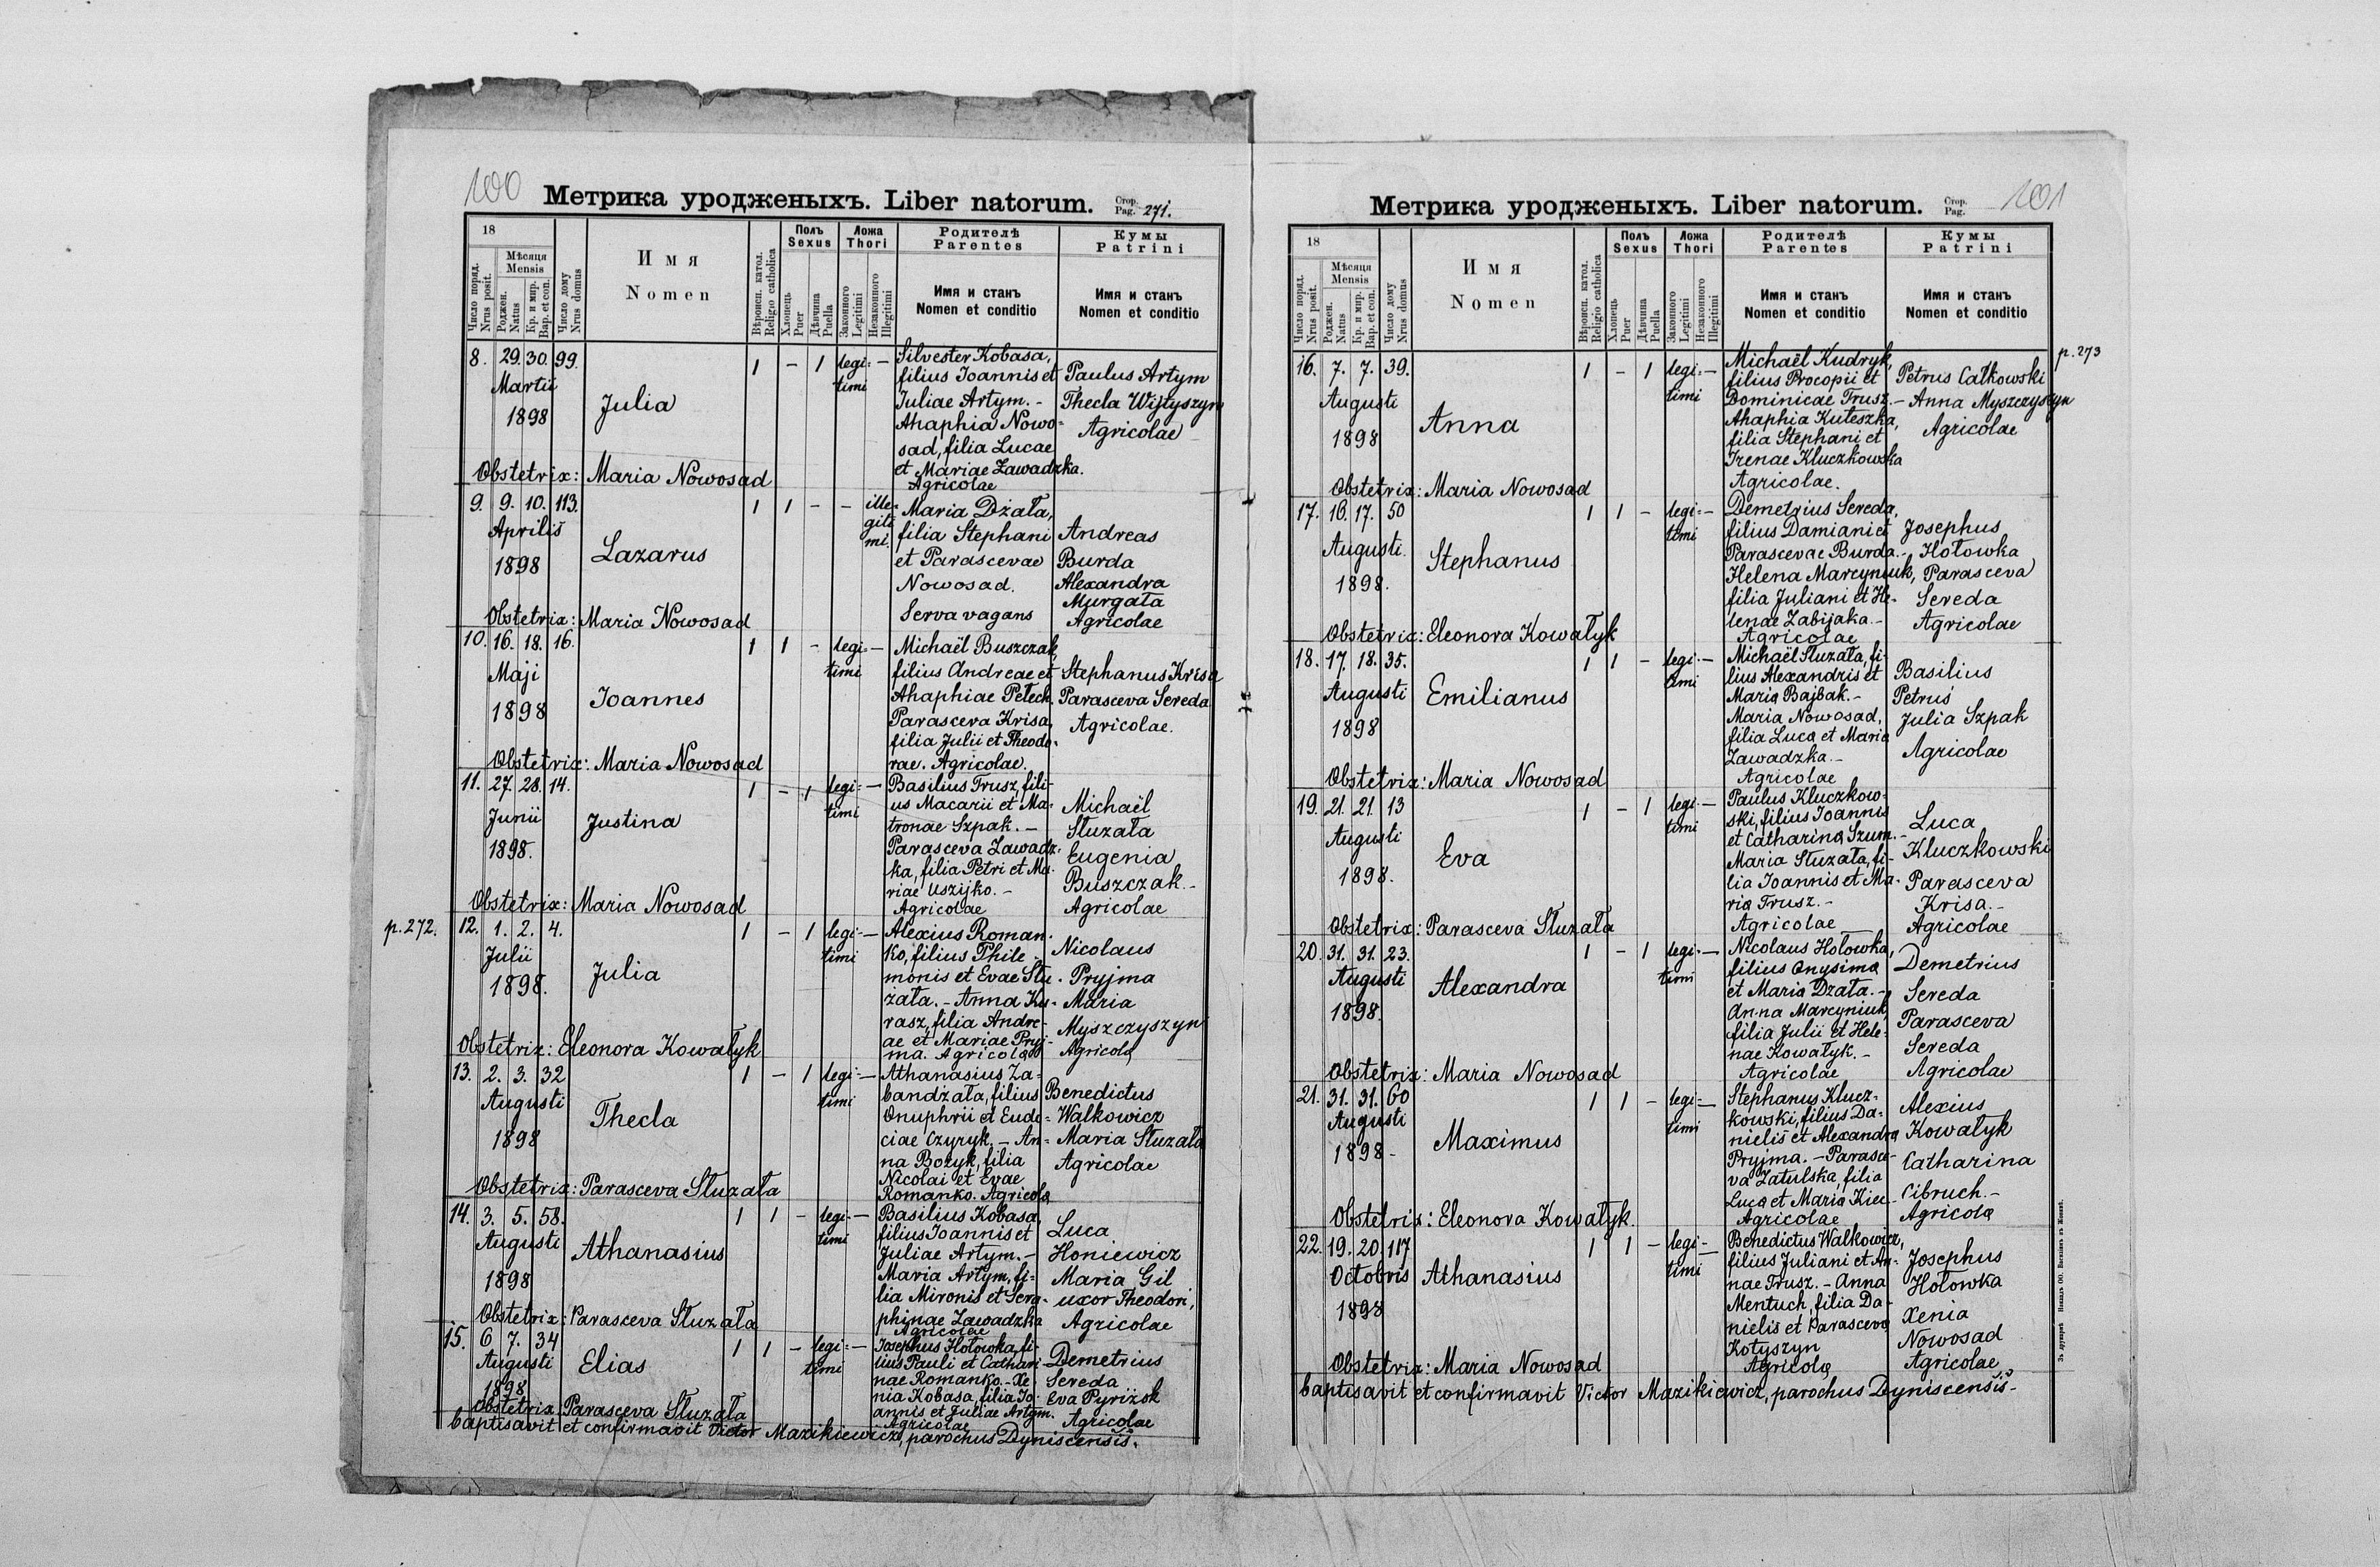 100
Метрика уродженыхъ. Liber natorum.
Стор.
Pag. 271.
18
Мѣсяця
Mensis
Число поряд.
Nrus posit.
Роджен.
Natus
Кр. и мир.
Bap. et con.
Число дому
Nrus domus
Имя
Nomen
Вѣроисп. катол.
Religio catholica
Полъ
Sexus
Хлопець
Puer
Дѣвчина
Puella
Ложа
Thori
Законного
Legitimi
Незаконного
Illegitimi
Родителѣ
Parentes
Имя и станъ
Nomen et conditio
Кумы
Patrini
Имя и станъ
Nomen et conditio
8. 29. 30. 99.
Martii
1898
Julia
1 - 1 legi= -
timi
Silvester Kobasa,
filius Joannis et
Juliae Artym. -
Ahaphia Nowo=
sad, filia Lucae
et Mariae Zawadzka.
Agricolae
Paulus Artym
Thecla Wijtyszyn
Agricolae
Obstetrix: Maria Nowosad
9. 9. 10. 113.
Aprilis
1898
Lazarus
1 1 - - ille=
giti
mi.
Maria Dżała,
filia Stephani
et Parascevae
Nowosad.
Serva vagans
Andreas
Burda
Alexandra
Murgała
Agricolae
Obstetrix: Maria Nowosad
10. 16. 18. 16.
Maji
1898
Joannes
1 1 - legi= -
timi
Michaël Buszczak,
filius Andreae et
Ahaphiae Petech.
Parasceva Krisa,
filia Julii et Theodo-
rae. Agricolae.
Stephanus Krisa
Parasceva Sereda
Agricolae.
Obstetrix: Maria Nowosad
11. 27. 28. 14.
Junii
1898.
Justina
1 - 1 legi= -
timi
Basilius Trusz, fili-
us Macarii et Ma-
tronae Szpak. -
Parasceva Zawadz-
ka, filia Petri et Ma-
riae Uszijko. -
Agricolae
Michaël
Służała
Eugenia
Buszczak. -
Agricolae
Obstetrix: Maria Nowosad
p. 272.
12. 1. 2. 4.
Julii
1898.
Julia
1 - 1 legi= -
timi
Alexius Roman-
ko, filius Phile-
monis et Evae Słu-
żała. - Anna Ku-
rasz, filia Andre-
ae et Mariae Pryj-
ma. Agricolae
Nicolaus
Pryjma
Maria
Myszczyszyn
Agricolae
Obstetrix: Eleonora Kowałyk
13. 2. 3. 32
Augusti
1898
Thecla
1 - 1 legi= -
timi
Athanasius Za=
bandżała, filius
Onuphrii et Eudo=
ciae Czyryk. - An=
na Bożyk, filia
Nicolai et Evae
Romanko. Agricolae
Benedictus
Walkowicz
Maria Służała
Agricolae
Obstetrix: Parasceva Służała
14. 3. 5. 58.
Augusti
1898
Athanasius
1 1 - legi= -
timi
Basilius Kobasa,
filius Joannis et
Juliae Artym. -
Maria Artym, fi=
lia Mironis et Sera-
phinae Zawadzka
Agricolae
Luca
Honiewicz
Maria Gil
uxor Theodori,
Agricolae
Obstetrix: Parasceva Służała
15. 6 7. 34
Augusti
1898
Elias
1 1 - legi= -
timi
Josephus Hołowka, fi-
lius Pauli et Cathari-
nae Romanko. - Xe-
nia Kobasa, filia Jo-
annis et Juliae Artym.
Agricolae
Demetrius
Sereda
Eva Pyriżok
Agricolae
Obstetrix: Parasceva Służała
baptisavit et confirmavit Victor Mazikiewicz, parochus Dyniscensis.
101
Метрика уродженыхъ. Liber natorum.
Стор.
Pag.
18
Мѣсяця
Mensis
Число поряд.
Nrus posit.
Роджен.
Natus
Кр. и мир.
Bap. et con.
Число дому
Nrus domus
Имя
Nomen
Вѣроисп. катол.
Religio catholica
Полъ
Sexus
Хлопець
Puer
Дѣвчина
Puella
Ложа
Thori
Законного
Legitimi
Незаконного
Illegitimi
Родителѣ
Parentes
Имя и станъ
Nomen et conditio
Кумы
Patrini
Имя и станъ
Nomen et conditio
p. 273
16. 7. 7. 39.
Augusti
1898
Anna
1 - 1 legi= -
timi
Michaël Kudryk,
filius Procopii et
Dominicae Trusz. -
Ahaphia Kuteszka,
filia Stephani et
Irenae Kluczkowska
Agricolae.
Petrus Całkowski
Anna Myszczyszyn
Agricolae
Obstetrix: Maria Nowosad
17. 16. 17. 50
Augusti.
1898.
Stephanus
1 1 - legi= -
timi
Demetrius Sereda,
filius Damiani et
Parascevae Burda. -
Helena Marcyniuk,
filia Juliani et He-
lenae Zabijaka. -
Agricolae
Josephus
Hołowka
Parasceva
Sereda
Agricolae
Obstetrix: Eleonora Kowałyk
18. 17. 18. 35.
Augusti
1898
Emilianus
1 1 - legi- -
timi
Michaël Służała, fi-
lius Alexandris et
Maria Bajbak. -
Maria Nowosad,
filia Luca et Maria
Zawadzka. -
Agricolae
Basilius
Petrus
Julia Szpak
Agricolae
Obstetrix: Maria Nowosad
19. 21. 21. 13
Augusti
1898.
Eva
1 - 1 legi- -
timi
Paulus Kluczkow-
ski, filius Joannis
et Catharina Szum. -
Maria Służała, fi-
lia Joannis et Ma-
ria Trusz. -
Agricolae
Luca
Kluczkowski
Parasceva
Krisa. -
Agricolae
Obstetrix: Parasceva Służała
20. 31. 31. 23.
Augusti
1898.
Alexandra
1 - 1 legi- -
timi
Nicolaus Hołowka,
filius Onysima
et Maria Dżała. -
Anna Marcyniuk,
filia Julii et Hele-
nae Kowałyk. -
Agricolae
Demetrius
Sereda
Parasceva
Sereda
Agricolae
Obstetrix: Maria Nowosad
21. 31. 31. 60
Augusti
1898 -
Maximus
1 1 - legi- -
timi
Stephanus Klucz-
kowski, filius Da-
nielis et Alexandra
Pryjma. - Parasce-
va Zatulska, filia
Luca et Maria Kiec-
Agricolae
Alexius
Kowałyk
Catharina
Cibruch. -
Agricolae
Obstetrix: Eleonora Kowałyk
22. 19. 20. 117
Octobris
1898
Athanasius
1 1 - legi- -
timi
Benedictus Walkowicz,
filius Juliani et An-
nae Trusz. - Anna
Mentuch, filia Da-
nielis et Parasceva
Kotyszyn
Agricolae
Josephus
Hołowka
Xenia
Nowosad
Agricolae
Obstetrix: Maria Nowosad
baptisavit et confirmavit Victor Mazikiewicz, parochus Dyniscensis -